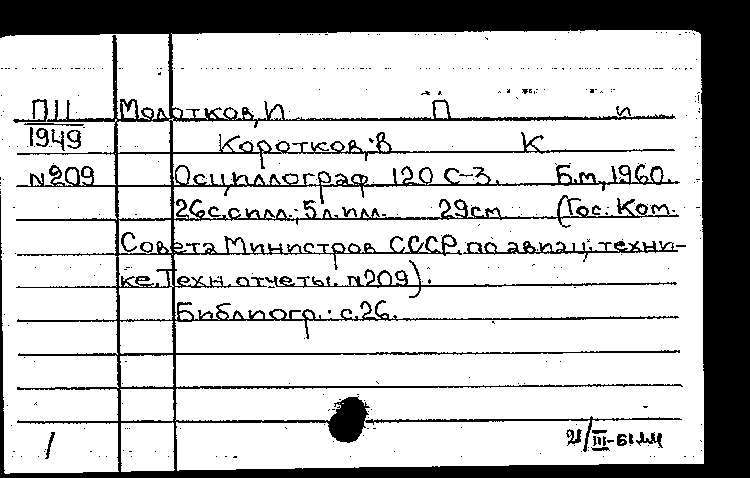 П11 Молотков, И П и
1949 Коротков, В К
№209 Осциллограф 120 С-3. Б.м, 1960.
26с.силл.; 5л.илл. 29см (Гос. Ком.
Совета Министров СССР. по авиац; техни-
ке. Техн. отчеты. №209).
Библиогр.: с.26.
/ 21/III-61